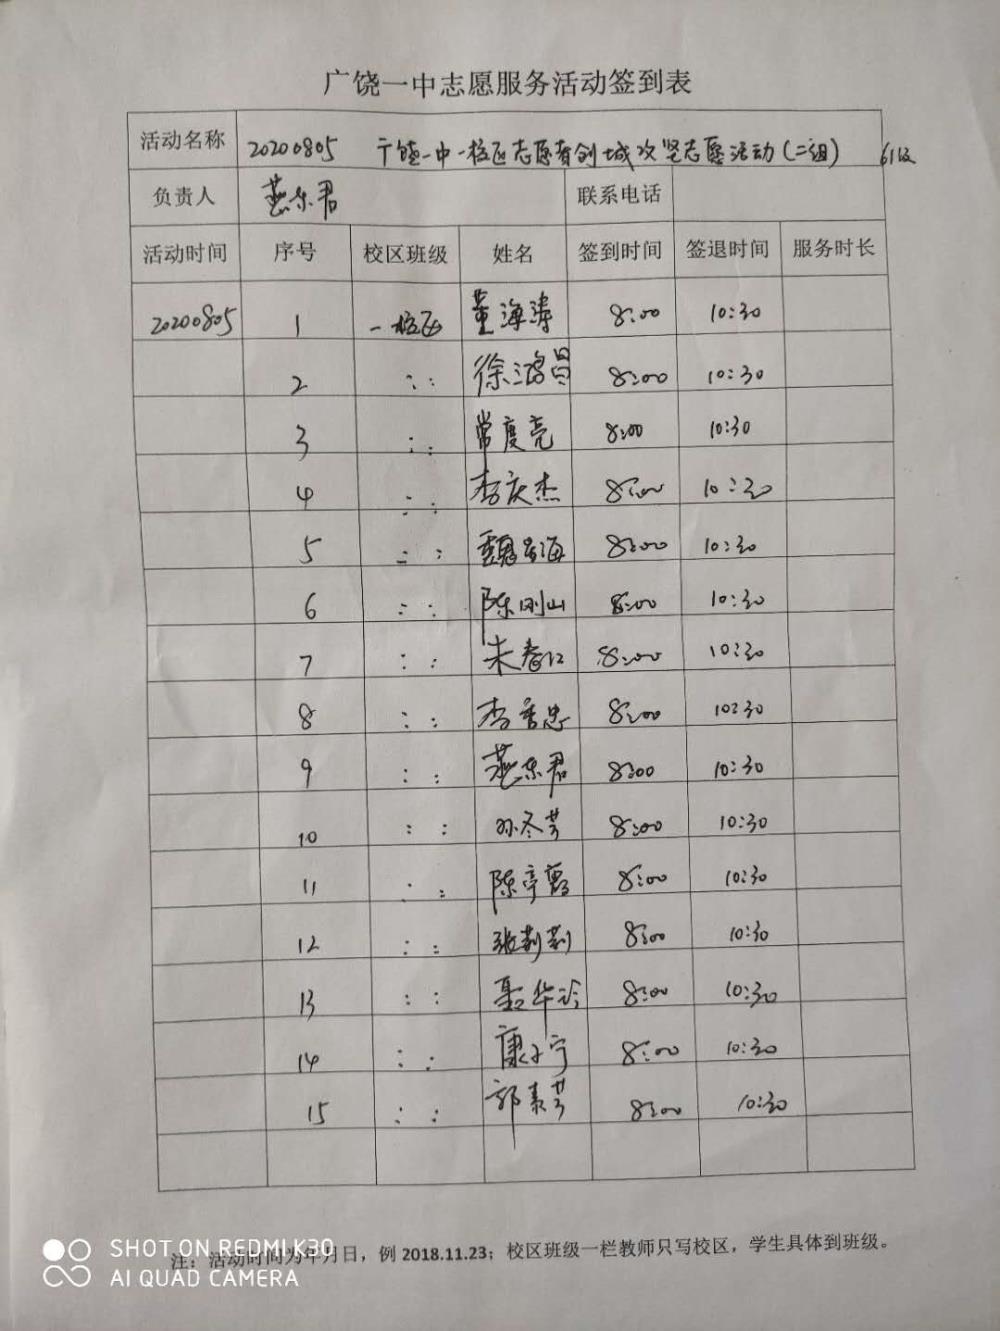 广饶一中志愿服务活动签到表
活动名称 20200805 广饶一中一校区志愿者创城攻坚志愿活动(二组)
负责人 燕东君 联系电话
活动时间 序号 校区班级 姓名 签到时间 签退时间 服务时长
20200805 1 一校区 董海涛 8:00 10:30
2 : : 徐鸿昌 8:00 10:30
3 : : 常度亮 8:00 10:30
4 : : 李庆杰 8:00 10:30
5 : : 8:00 10:30
6 : : 陈刚山 8:00 10:30
7 : : 朱春江 8:00 10:30
8 : : 8:00 10:30
9 : : 燕东君 8:00 10:30
10 : : 孙冬芳 8:00 10:30
11 : : 陈亭霞 8:00 10:30
12 : : 张莉莉 8:00 10:30
13 : : 聂华玲 8:00 10:30
14 : : 康小宁 8:00 10:30
15 : : 郭素芳 8:00 10:30
注：活动时间为年月日，例 2018.11.23；校区班级一栏教师只写校区，学生具体到班级。
SHOT ON REDMI K30
AI QUAD CAMERA